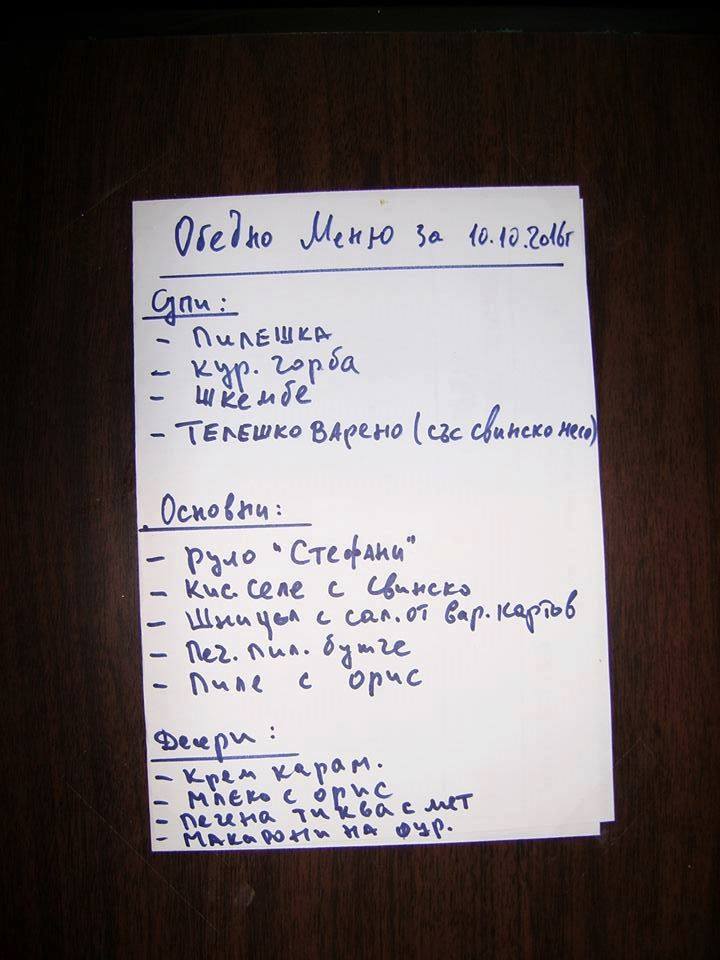 Обедно Меню за 10.10.2016г
Супи:
- ПИЛЕШКА
- кур. чорба
- шкембе
- ТЕЛЕШКО ВАРЕНО (със свинско месо)
Основни:
- руло "Стефани"
- Кис. селе с свинско
- Шницъл с сал. от вар. картов
- Печ. пил. бутче
- Пиле с орис
Десерти:
- Крем карам.
- МЛЯКО с орис
- Печена тиква с мет
- МАКАРОНИ НА фур.